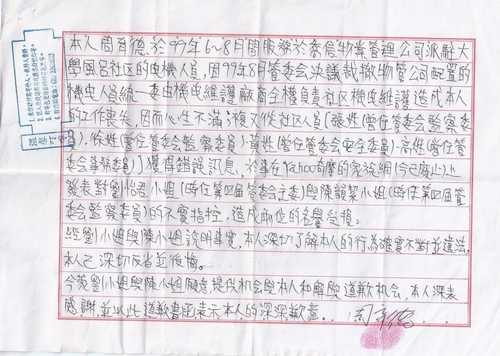 本人周百德於99年6~8月間服務於泰信物業管理公司派駐大
學風呂社区的电機人員,因99年8月管委会決議裁撤物管公司配置的
機电人員統一委由機电維護廠商全權負責社区機电維護造成本人
的工作喪失,因而心生不滿;復又從社区人員(
曾任管委会監察委
員)、徐姓(曾任管委会監察委員)、黃姓(曾任管委会安全委員)、高姓(曾任管
委会事務委員)獲得錯誤訊息、於是在Yahoo奇摩的家族網(今已廢止)上
發表對劉怡君小姐(時任第四届管委会主委)與陳 小姐(時任第四届管
委会監察委員)的不實指控,造成兩位的名譽危損。
經劉小姐與陳小姐說明事實,本人深切了解本人的行為確實不對並違法,
本人已深切反省並後悔。
今獲劉小姐與陳小姐願意提供机会與本人和解與道歉机会,本人深表
感謝,並以此道歉書函表示本人的深深歉意。